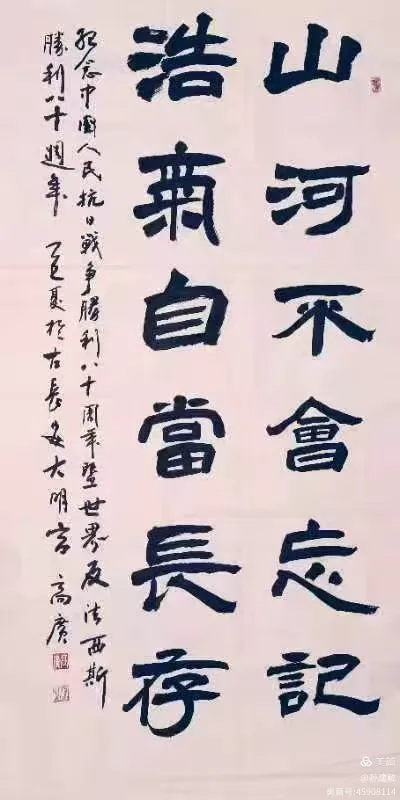 山河不會忘記
浩氣自當長存
紀念中國人民抗日戰爭勝利八十周年暨世界反法西斯
勝利八十週年 乙巳夏於古長安大明宮 高广